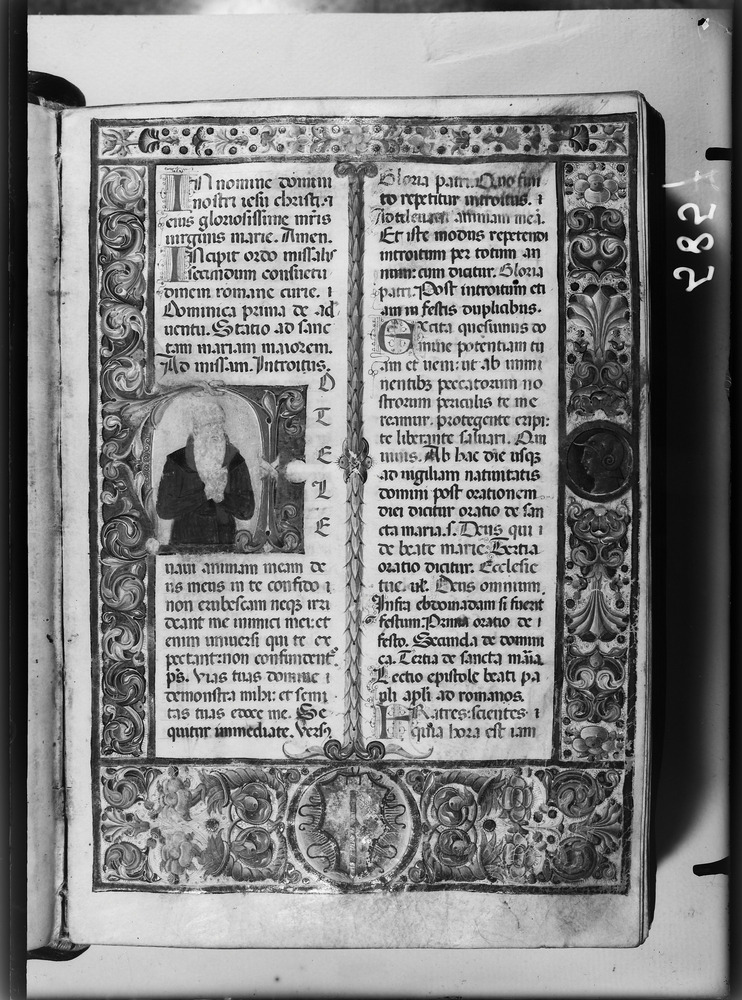 In nomine domini
nostri iesu christi. et
eius gloriosissime mris
uirginis marie. Amen.
Incipit ordo missalis
secundum consuetu
dinem romane curie. i
Dominica prima de ad
uentu. Statio ad sanc
tam mariam maiorem.
Ad missam. Introitus.
D
T
E
L
E
uaui animam meam de
us meus in te confido i
non erubescam neqz irri
deant me inimici mei: et
enim uniuersi qui te ex
pectant: non confundent̃.
p̃s. Vias tuas domine i
demonstra mihi: et semi
tas tuas edoce me. Se
quitur immediate. Vers9
Gloria patri. Quo fini
to repetitur introitus. i
Ad te leuaui animam meã.
Et iste modus repetendi
introitum per totum an
num: cum dicitur. Gloria
patri. Post introitum eti
am in festis duplicibus.
Excita quesumus do
mine potentiam tu
am et ueni: ut ab immi
nentibz peccatorum no
strorum periculis te me
reamur. protegente eripi:
te liberante saluari. Qui
uiuis. Ab hac die usqz
ad uigiliam natiuitatis
domini post orationem
diei dicitur oratio de san
cta maria. s. Deus qui i
de beate marie. Tertia
oratio dicitur. Ecclesie
tue. ul. Deus omnium.
Infra ebdomadam si fuerit
festum: Prima oratio de i
festo. Secunda de domini
ca. Tertia de sancta maria.
Lectio epistole beati pa
uli apli ad romanos.
Fratres: scientes i
quia hora est iam
5851